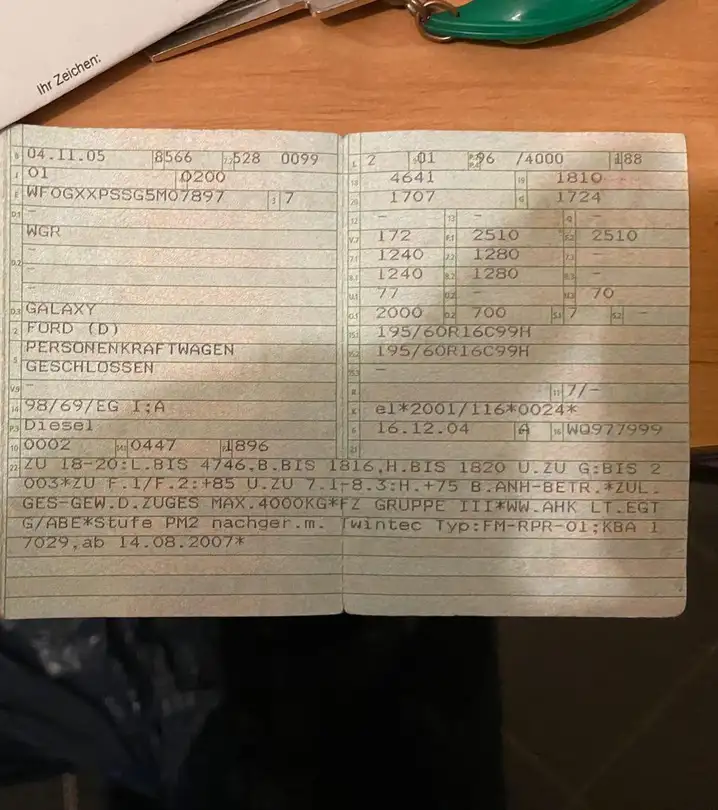 Ihr Zeichen:
04.11.05 8566 528 0099
01 0200
WF0GXXPSSG5M07897 7
-
WGR
-
-
-
GALAXY
FORD (D)
PERSONENKRAFTWAGEN
GESCHLOSSEN
-
98/69/EG I;A
Diesel
0002 0447 1896
2 01 96 /4000 188
4641 1810
1707 1724
- - -
172 2510 2510
1240 1280 -
1240 1280 -
77 - 70
2000 700 7 -
195/60R16C99H
195/60R16C99H
-
7/-
e1*2001/116*0024*
16.12.04 A WQ977999
ZU 18-20:L.BIS 4746,B.BIS 1816,H.BIS 1820 U.ZU G:BIS 2
003*ZU F.1/F.2:+85 U.ZU 7.1-8.3:H.+75 B.ANH-BETR.*ZUL.
GES-GEW.D.ZUGES MAX.4000KG*FZ GRUPPE III*WW.AHK LT.EGT
G/ABE*Stufe PM2 nachger.m. Twintec Typ:FM-RPR-01;KBA 1
7029,ab 14.08.2007*